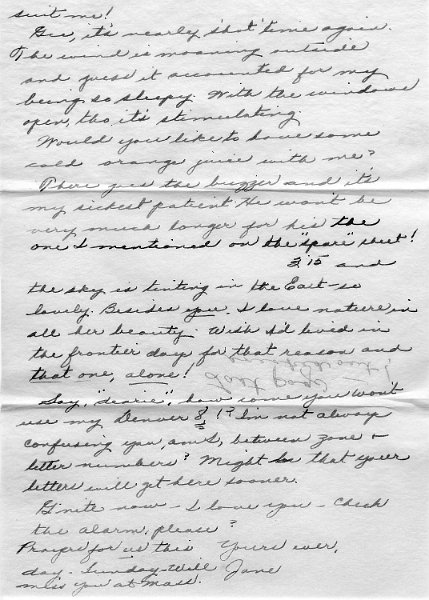 suit me!
Gee, it's nearly "shot" time again.
The wind is moaning outside
and guess it accounted for my
being so sleepy. With the windows
open, tho it's stimulating.
Would you like to have some
cold orange juice with me?
There goes the buzzer and it's
my sickest patient. He won't be
very much longer for his the
one I mentioned on the "spare" sheet!
3:15 and
the sky is tinting in the East - so
lovely. Besides you, I love nature in
all her beauty. Wish I'd lived in
the frontier day for that reason and
that one, alone!
Say, "dearie", how come you won't
use my Denver 8? I'm not always
confusing you, am I, between zone &
letter numbers? Might be that your
letters will get here sooner.
G'nite now - I love you - Check
the alarm, please?
Prayers for us this Yours ever,
day - Sunday - Will Jane
miss you at Mass.